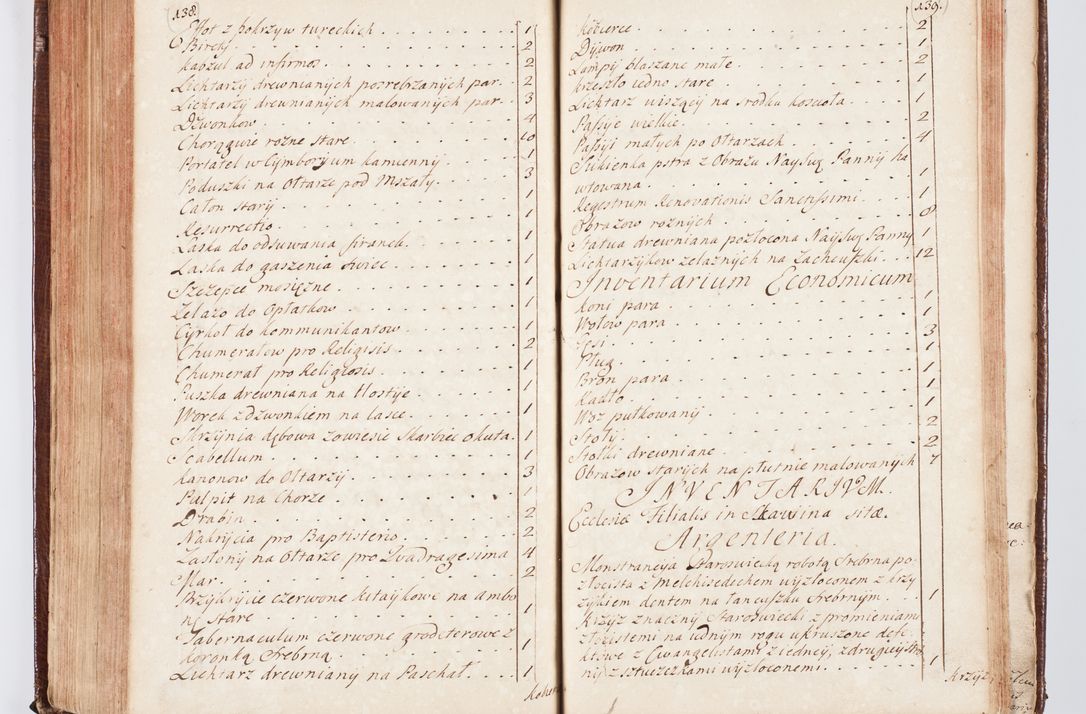 138.
Płot z pokrzyw tureckich 1
Birety 2
Kapzul ad infirmos 2
Lichtarzy drewnianych posrebrzanych par 2
Lichtarzy drewnianych malowanych par 3
Dzwonkow 4
Chorągwie rożne stare 10
Portatel w Cymboryum kamienny 1
Poduszki na Ołtarze pod Mszały 3
Całun stary 1
Resurrectio 1
Laska do odsuwania firanek 1
Laska do gaszenia swiec 1
Szczypce mosięzne 1
Zelazo do Opłatkow 1
Cyrkoł do kommunikantow 1
Chumerałow pro Religiosis 2
Chumerał pro Religiosis 1
Puszka drewniana na Hostyje 1
Worek z dzwonkiem na lasce 1
Skrzynia dębowa zowiesie Skarbiec okuta 1
Scabellum 1
Kanonow do Ołtarzy 3
Pulpit na Chorze 1
Drabin 2
Nakryjcia pro Baptisterio 2
Zasłony na Ołtarze pro Quadragesima 4
Mar 2
Przykryjcie czerwone kitaykowe na ambo
ny stare 1
Tabernaculum czerwone grodeterowe z
koronką Srebrną 1
Lichtarz drewniany na Paschał 1
139.
Kobierce 2
Dywon 1
Lampy blaszane małe 2
Krzesło iedno stare 1
Lichtarz wiszący na srodku koscioła 1
Passyje wielkie 2
Passyi małych po Ołtarzach 4
Sukienka pstra z Obrazu Nayswę Panny ha
wtowana 1
Regestrum Renovationis Sanctissimi 1
Obrazow rożnych 8
Statua drewniana pozłocona Nayswę Panny 1
Lichtarzykow zelaznych na Zacheuszki 12
Inventarium Economicum
Koni para 1
Wołow para 1
Psi 3
Pług 1
Bron para 1
Radło 1
Woz pułkowany 1
Stoły 2
Stołki drewniane 2
Obrazow starych na płutnie malowanych 7
INVENTARIUM
Ecclesiæ Filialis in Skawina sitæ.
Argenteria.
Monstrancya Staroswiecką robotą Srebrna po-
złocista z Melchisedechem wyzłoconem z krzy
zykiem dentem na łancuszku Srebrnym 1
Krzyz znaczny Staroswiecki z promieniami
złocistemi na iednym rogu ukruszone defe-
ktowe z Ewangelistami z iedney, z drugiey stro
ny z sztuczkami wyzłoconemi 1
Krzyz